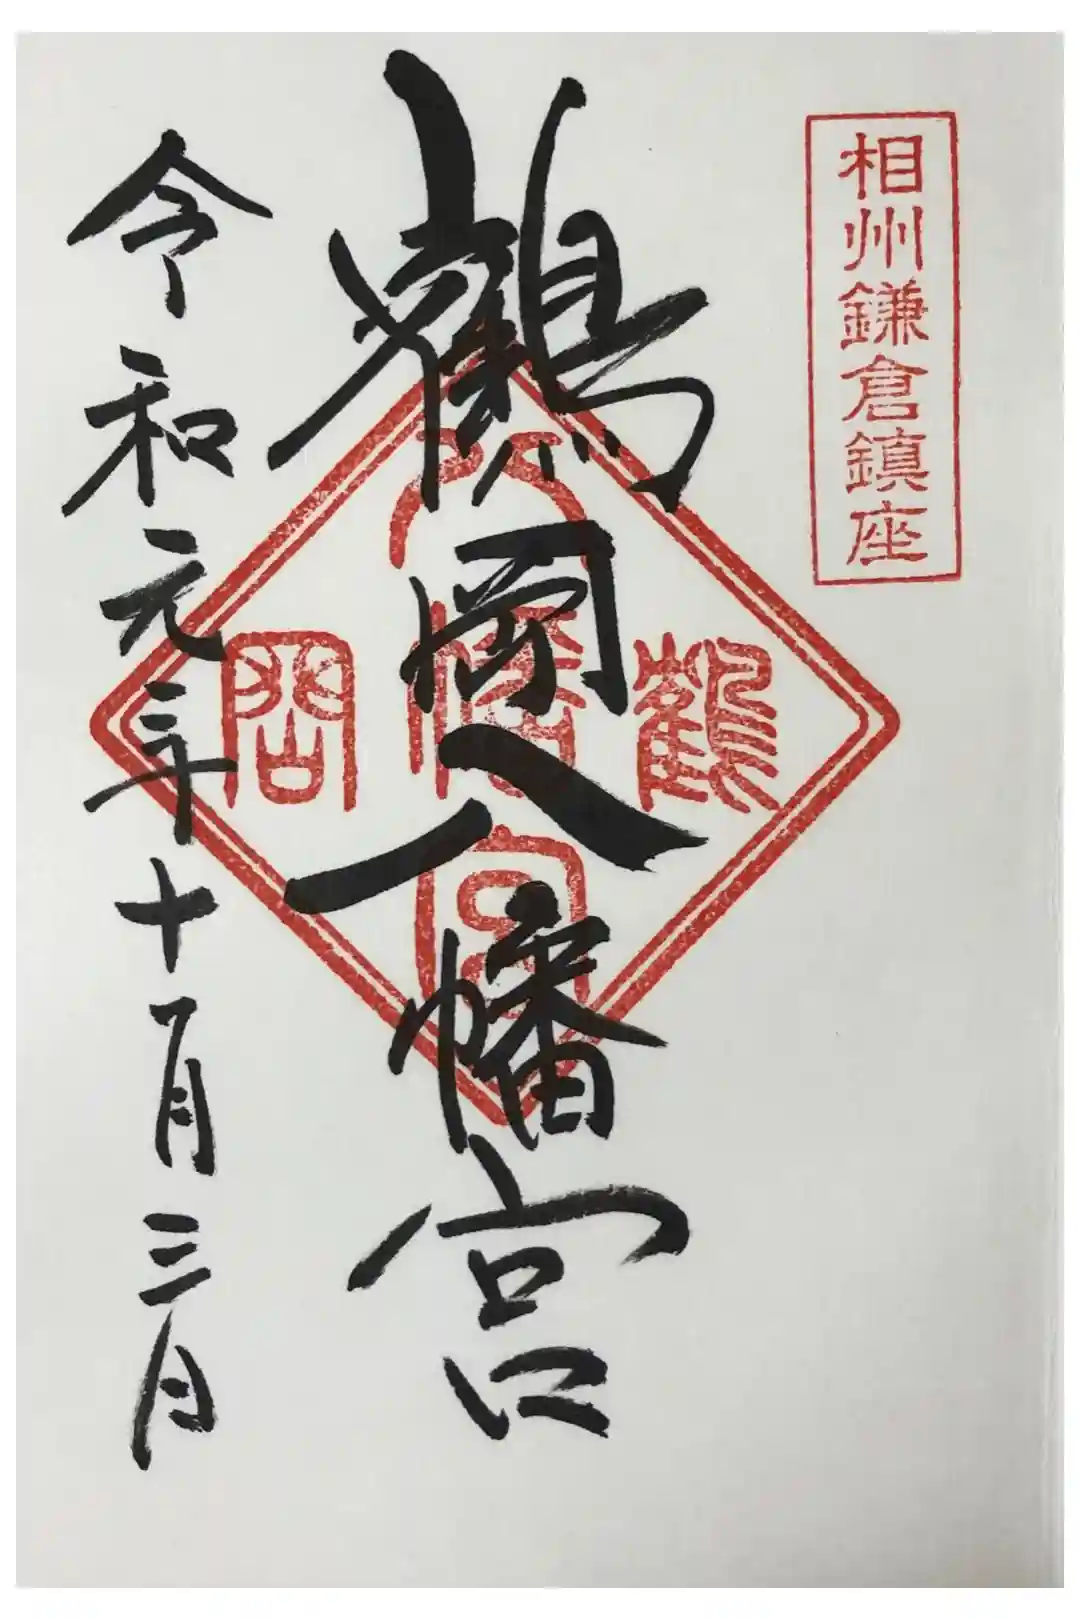 相州鎌倉鎮座
鶴岡八幡宮
鶴岡八幡宮
令和元年十一月三日